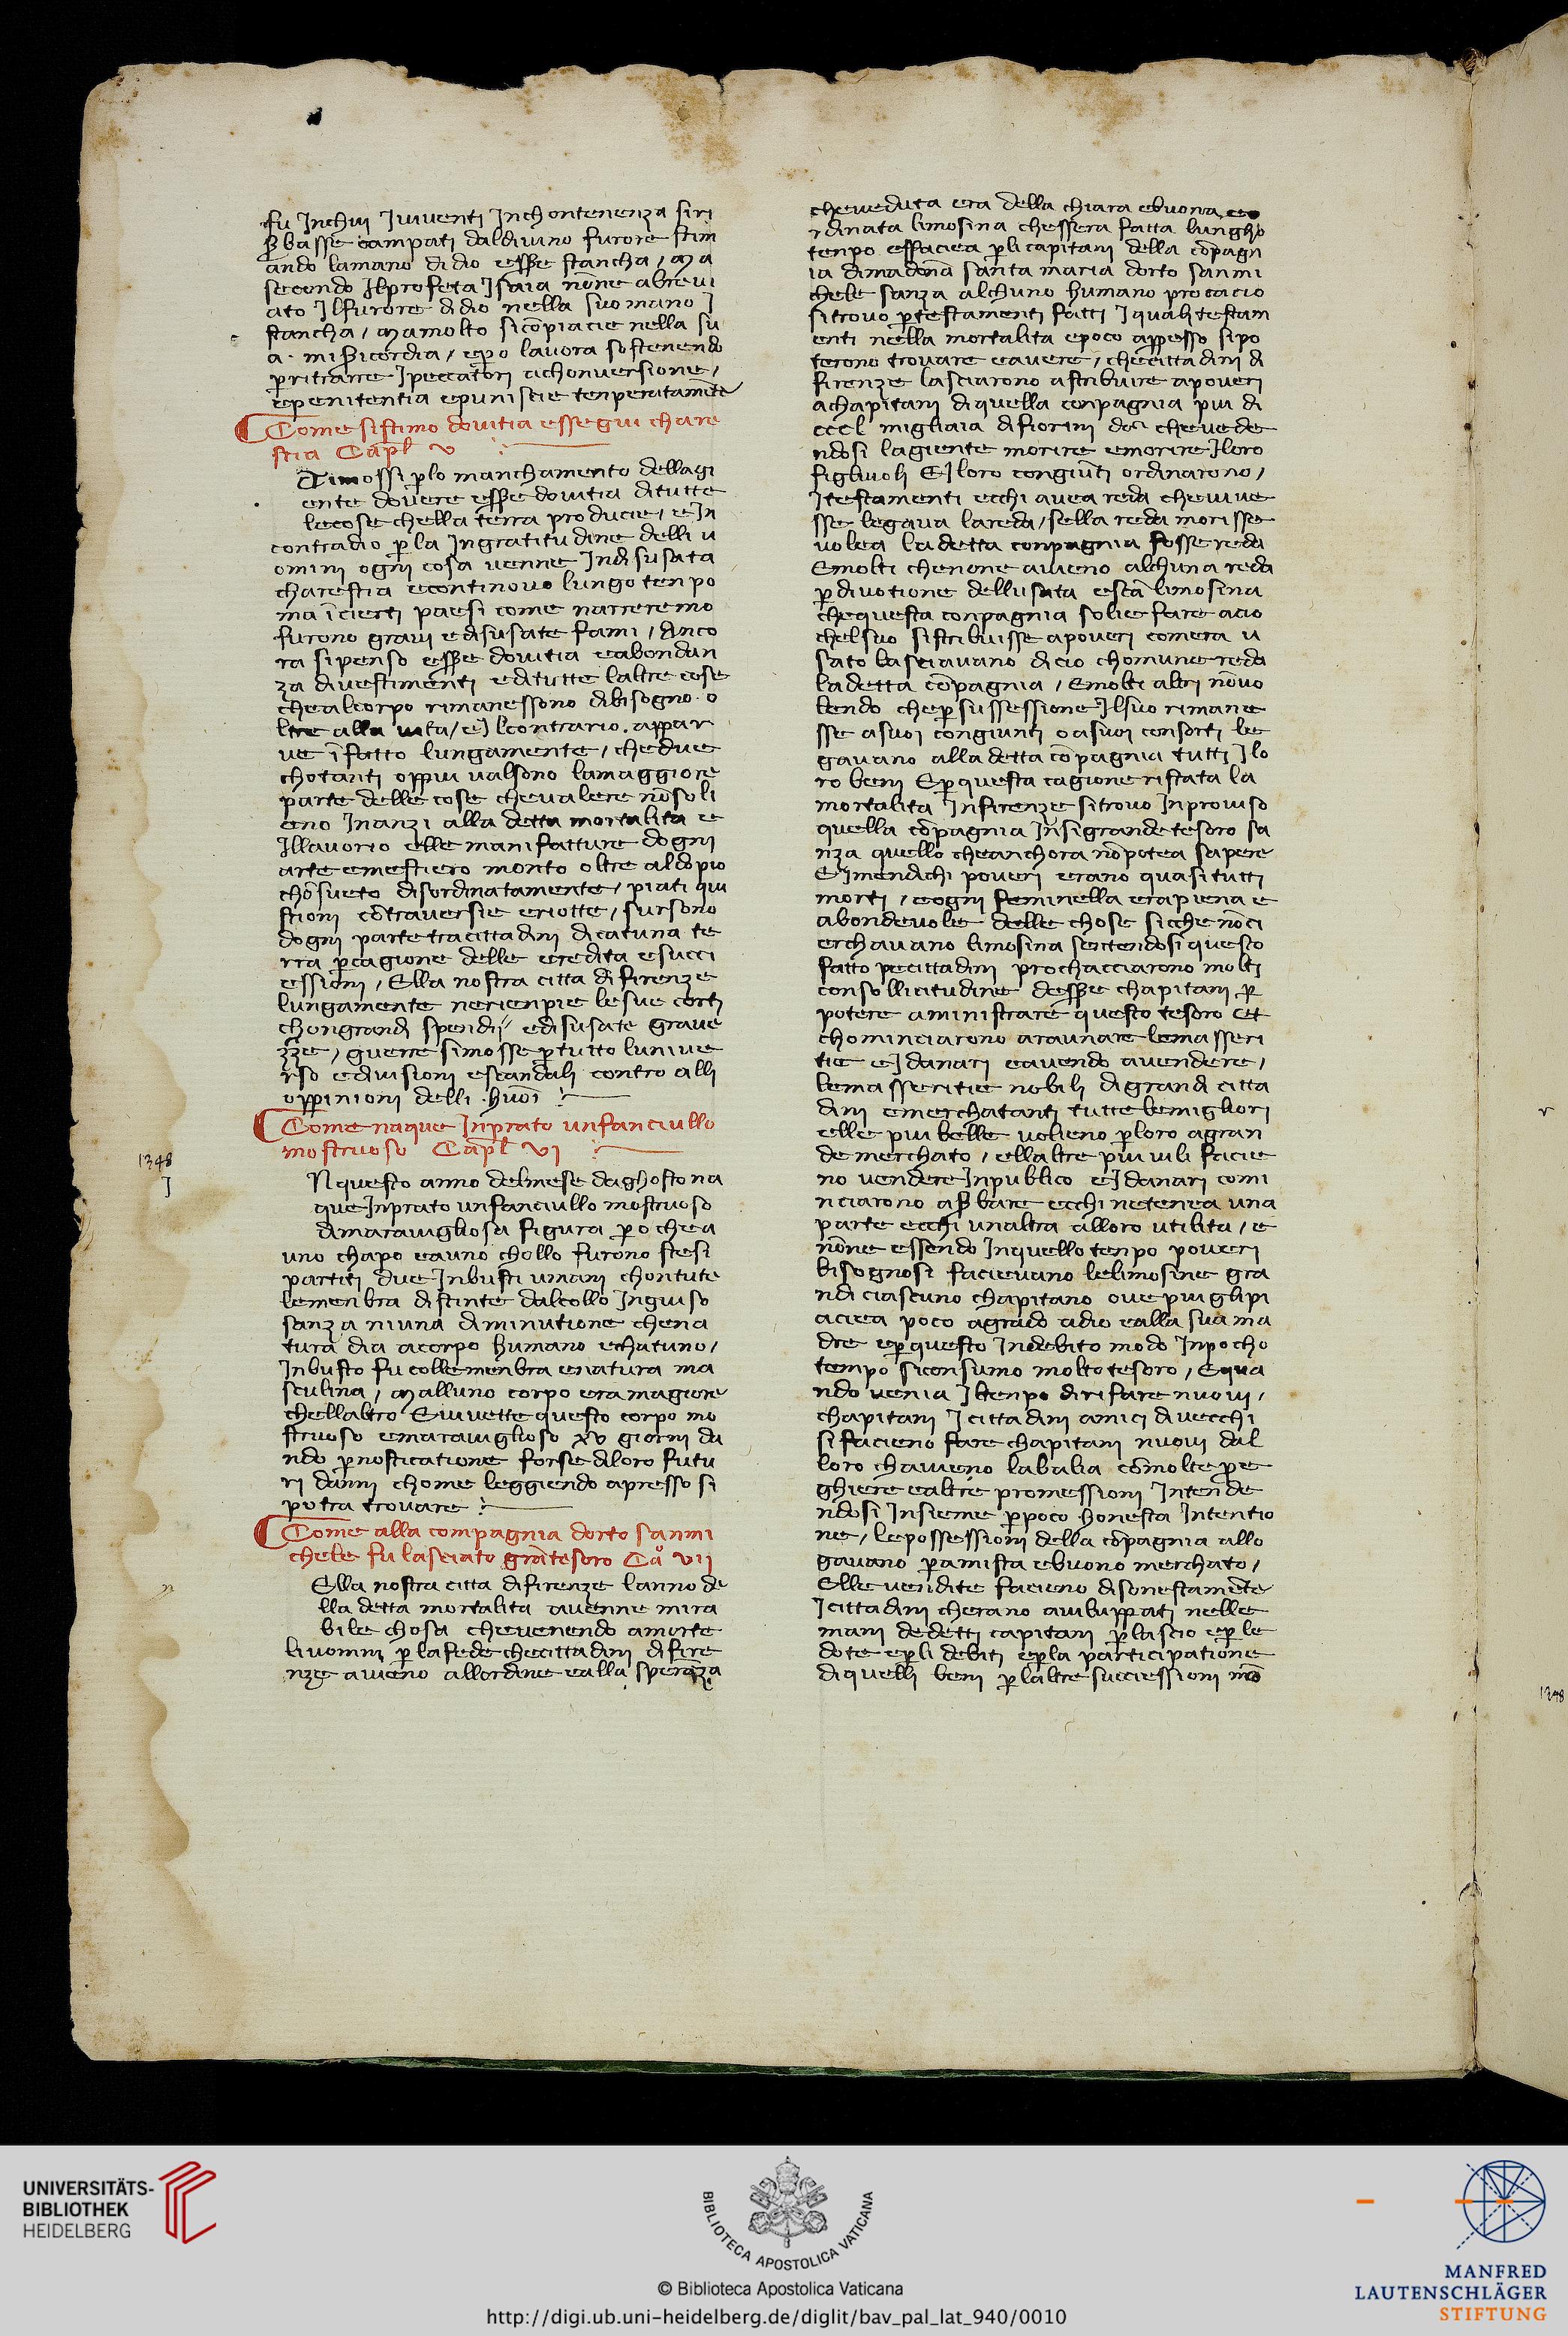 fu Jnchui J viventi Jnchontenenza siri
sbasse campati daldivino furore stim
ando lamano di dio esse stancha / Ma
secondo Jlprofeta Jsaia nōne abrevi
ato Jlfurore didio nella suo mano J
stancha / Mamolto sicōpiacie nella su
a misicordia / epo lavora sostenendo
pritrarre J peccatori achonversione /
epenitentia epuniscie tenperatamēte
Come sistimo dovitia essegui chare
stia Capl v
Timossi plo manchamento dellagi
ente dovere esse dovitia ditutte
lecose chella terra producie / e Jn
contradio p la Jngratitudine delli u
omini ogni cosa venne Jndisusata
charestia econtinovo lungo tenpo
ma īcierti paesi come narreremo
furono gravi edisusate fami / Anco
ra sipenso esse dovitia eabondan
za divestimenti editutte laltre cose
chealcorpo rimanessono dibisogno o
ltre alla vita / e Jlcontrario appar
ve īfatto lungamente / chedue
chotanti oppiu valsono lamaggiore
parte delle cose chevalere nōsoli
eno Jnanzi alla detta mortalita e
Jllavorio elle manifatture dogni
arte emestiero monto oltre aldopio
chōsueto disordinatamente / piati qui
stioni cōtraversie eriotte / sursono
dogni parte tracittadini dicatuna te
rra pcagione delle eredita esucci
essioni / Ella nostra citta difirenze
lungamente neriempie lesue corti
chongrandi spendii edisusate grave
zze / guerre simosse ptutto lunive
rso edivisioni escandali contro alli
oppinioni delli huoī
Come naque Jnprato unfanciullo
mostruoso Capl vi
1348
J
N questo anno delmese daghosto na
que Jnprato unfanciullo mostruoso
dimaravigliosa figura po chea
uno chapo eauno chollo furono stesi
partiti due Jnbusti umani chontute
lemenbra distinte dalcollo Jnguiso
sanza niuna diminutione chena
tura dia acorpo humano echatuno /
Jnbusto fu collemenbra enatura ma
sculina / Malluno corpo era magiore
chellaltro Eivivette questo corpo mo
struoso emaraviglioso xv giorni da
ndo pnosticatione forse diloro futu
ri danni chome leggiendo apresso si
potra trovare
Come alla compagnia dorto sanmi
chele fu lasciato grāntesoro Cao vii
Ella nostra citta difirenze lanno de
lla detta mortalita avenne mira
bile chosa chevenendo amorte
liuomini p lafede checittadini difire
nze aveno allordine ealla speranza
cheveduta era della chiara ebuona eo
rdinata limosina chessera fatta lungho
tenpo effaciea pli capitani della cōpagn
ia dimadonā santa maria dorto sanmi
chele sanza alchuno humano procacio
sitrovo ptestamenti fatti J quali testam
enti nella mortalita epoco appesso sipo
terono trovare eavere / checittadini di
firenze lasciarono astribuire apoveri
achapitani diquella conpagnia piu di
cccl migliaia difiorini do chevede
ndosi lagiente morire emorire Jloro
figliuoli E Jloro congiūti ordinarono /
J testamenti ecchi avea reda chevive
sse legava lareda / sella reda morisse
volea ladetta conpagnia fosse reda
Emolti chenone aveno alchuna reda
p divotione dellusata estā limosina
chequesta conpagnia solie fare acio
chelsuo sistribuisse apoveri comera u
sato lasciavano dicio chomune reda
ladetta cōpagnia / Emolti altri nōvo
lendo chepsussessione Jlsuo rimane
sse asuoi congiunti o asuoi consorti le
gavano alladetta cōpagnia tutti J lo
ro beni Epquesta cagione ristata la
mortalita Jnfirenze sitrovo Jnproviso
quella cōpagnia Jnsigrande tesoro sa
nza quello cheanchora nōpotea sapere
E Jmendichi poveri erano quasi tutti
morti / eogni feminella erapiena e
abondevole delle chose sicche nōci
erchavano limosina sentendosi questo
fatto pecittadini prochacciarono molti
consollicitudine desse chapitani p
potere aministrare questo tesoro Et
chominciarono araunare lemasseri
tie e J danari eavendo avendere /
lemasseritie nobili digrandi citta
dini emerchatanti tutte lemigliori
elle piu belle volieno ploro agran
de merchato / ellaltre piu vili facie
no vendere Jnpubblico e J danari comi
nciarono asbare ecchi netenea una
parte ecchi unaltra alloro utilita / e
nōne essendo Jnquello tenpo poveri
bisognosi facievano lelimosine gra
ndi ciascuno chapitano ove piu glipi
aciea poco agrado adio ealla sua ma
dre epquesto Jndebito modo Jnpocho
tempo siconsumo molto tesoro / E qua
ndo venia J ltenpo dirifare nuovi /
chapitani J cittadini amici divecchi
sifacieno fare chapitani nuovi dal
loro chavieno labalia cōmolte pe
ghiere ealtre promessioni Jntende
ndosi Jnsieme ppoco honesta Jntentio
ne / lepossessioni della cōpagnia allo
gavano pamista ebuono merchato /
Elle vendite facieno disonestamēte
J cittadini cherano aviluppati nelle
mani dedetti capitani plascio eple
dote epli debiti epla participatione
diquelli beni plaltre succiessioni mō
1348
UNIVERSITÄTS-
BIBLIOTHEK
HEIDELBERG
BIBLIOTECA APOSTOLICA VATICANA
© Biblioteca Apostolica Vaticana
http://digi.ub.uni-heidelberg.de/diglit/bav_pal_lat_940/0010
MANFRED
LAUTENSCHLÄGER
STIFTUNG